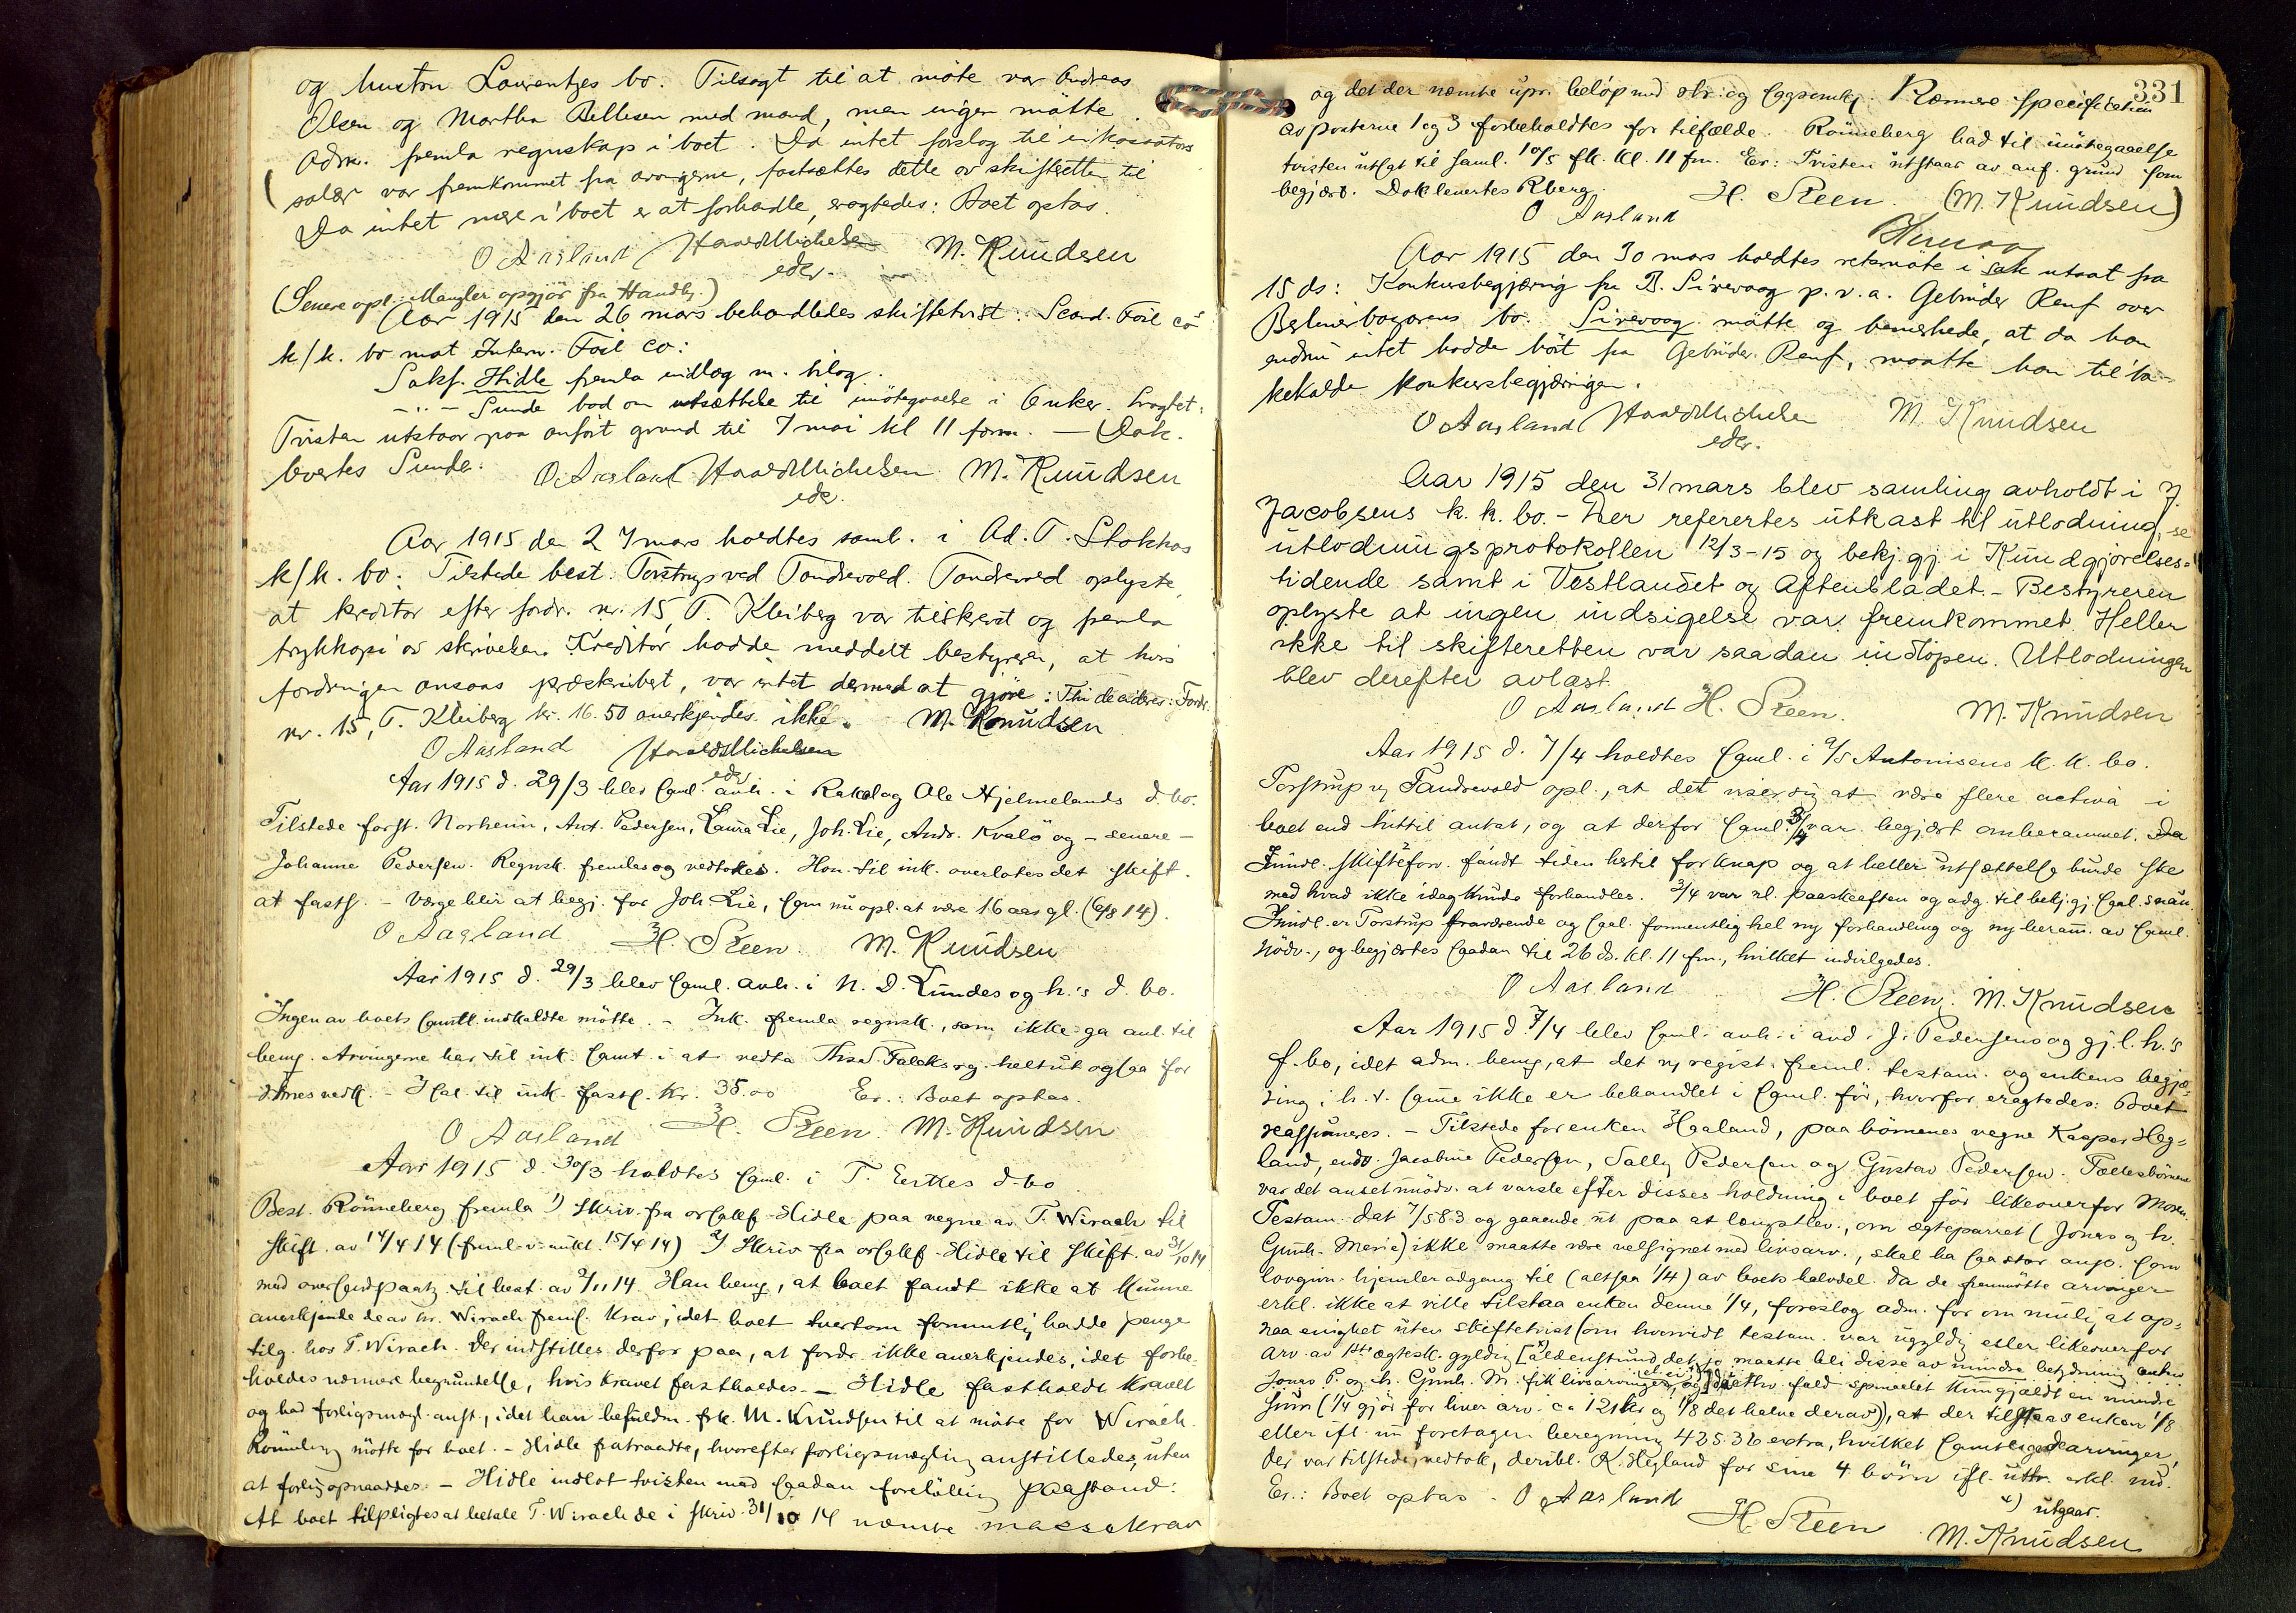 og hustru Laurentzes bo. Tilsagt til at møte var Andreas
Olsen og Martha Bellesen med mand, men ingen møtte
Adm. fremla regnskap i boet. Da intet forslag til inkassators
salær var fremkommet fra arvingerne, fastsættes dette av skifteretten til
Da intet mere i boet er at forhandle, eragtedes: Boet optas.
O Aasland Harald Michelsen M. Knudsen
edsv.
(Senere opl.: Mangler opgjør fra Handby.)
Aar 1915 den 26 mars behandledes skiftetvist: Scand. Foil Co
k/k. bo mot Intern. Foil Co:
Sakf. Hidle fremla indlæg m. bilag.
— " — Sunde bad om utsættelse til imøtegaaelse i 6 uker. Eragtet:
Tvisten utstaar paa anført grund til 7 mai kl 11 form. — Dok.
levertes Sunde.
O. Aasland Harald Michelsen M. Knudsen
edsv.
Aar 1915 den 27 mars holdtes saml. i Ad. T. Stokkas
k/k. bo. Tilstede best. Torstrup ved Tandrevold. Tandrevold oplyste,
at kreditor efter fordr. nr. 15, T. Kleiberg var tilskrevet og fremla
trykkopi av skrivelsen. Kreditor hadde meddelt bestyreren, at hvis
fordringen ansaas præskribert, var intet dermed at gjøre: Thi decideres: Fordr.
nr. 15, T. Kleiberg kr. 16.50 anerkjendes ikke. M. Knudsen
O Aasland Harald Michelsen
edsv
Aar 1915 d. 29/3 blev saml. avh. i Rakel og Ole Hjelmelands d. bo.
Tilstede forst. Norheim, Ant. Pedersen, Laura Lie, Joh. Lie, Andr. Kvalø og – senere –
Johanne Pedersen. Regnsk. fremlaes og vedtokes. Hon. til ink. overlotes det skift.
at fasts. – Værge blir at begj. for Joh. Lie, som nu opl. at være 16 aar gl. (6/8 14).
O Aasland H. Steen M. Knudsen
Aar 1915 d. 29/3 blev saml. avh. i N. D. Lundes og h.'s d. bo.
Ingen av boets samtl. indkaldte møtte. – Ink. fremla regnsk., som ikke ga anl. til
bem. Arvingerne har til ink. samt. i at vedta Thsd. Falcks rg. heltut ogsaa for
deres vedk. – Sal. til ink. fasts. kr. 35.00 Er.: Boet optas.
O Aasland H. Steen M. Knudsen
Aar 1915 d. 30/3 holdtes saml. i T. Eertkes d. bo
Best. Rønneberg fremla 1) skriv. fra orsakf. Hidle paa vegne av T. Wirach til
skift. av 14/4 14 (freml. v. mkl. 15/4 14) 2) Skriv fra orsakf. Hidle til skift. av 31/10 14
med oversendpaat. til best. av 2/11 14. Han bem., at boet fandt ikke at kunne
anerkjende de av hr. Wirach frems. krav, idet boet tvertom forventlig hadde penge
tilg. hos T. Wirach. Der indstilles derfor paa, at fordr. ikke anerkjendes, idet forbe-
holdes nærmere begrundelse, hvis kravet fastholdes. – Hidle fastholdt kravet
og bad forligsmægl. anst., idet han befuldm. frk. M. Knudsen til at møte for Wirach.
Rønneberg møtte for boet. – Hidle fratraadte, hvorefter forligsmægling anstilledes, uten
at forlig opnaaddes. – Hidle indlot tvisten med saadan foreløbig paastand:
At boet tilpligtes at betale T. Wirach de i skriv. 31/10 14 nævnte massekrav
331
og det der nævnte upr. beløp med str. og sagsomk. Nærmere specification
av posterne 1 og 3 forbeholdtes for tilfælde. Rønneberg bad til imøtegaaelse
tvisten utsat til saml. 10/5 fk. kl. 11 fm. Er: Tvisten utstaar av anf. grund som
begjært. Dok levertes Rberg.
O Aasland H. Steen (M. Knudsen)
Aar 1915 den 30 mars holdtes retsmøte i sak utsat fra
15 ds: Konkursbegjæring fra B. Sirevaag p. v. a. Gebrüder Renf over
Berlinerbazarens bo. Sirevaag møtte og bemerkede, at da han
endnu intet hadde hørt fra Gebrüder Renf, maatte han tilba-
kekalde konkursbegjæringen.
O Aasland Harald Michelsen M. Knudsen
edsv.
Aar 1915 den 31 mars blev samling avholdt i J.
Jacobsens k. k. bo. – Der refererte utkast til utlodning, se
utlodningsprotokollen 12/3-15 og bekj. gj. i Kundgjørelses-
tidende samt i Vestlandet og Aftenbladet. – Bestyreren
oplyste at ingen indsigelse var fremkommet. Heller
ikke til skifteretten var saadan indløpen. Utlodningen
blev derefter avlæst.
O Aasland H. Steen. M. Knudsen
Aar 1915 d. 7/4 holdtes saml. i A/S Antonisens k. k. bo.
Torstrup v. Tandrevold opl., at det viser sig at være flere activa i
boet end hittil antat, og at derfor saml. 3/4 var begjært omberammet. Da
Imidl. skifteforv. fandt tiden hertil for knap og at heller utsættelse burde ske
med hvad ikke idag kunde forhandles. 3/4 var nl. paaskeaften og adg. til bekj. gj. saal. snau.
Imidl. er Torstrup fraværende og saal. formentlig hel ny forhandling og ny beram. av saml.
nødv., og begjærtes saadan til 26 ds. kl. 11 fm., hvilket indvilgedes.
O Aasland H. Steen. M. Knudsen
Aar 1915 d 7/4 blev saml. avh. i avd. J. Pedersens og gj. l. h.'s
f. bo, idet adm. bem., at det nu regist. freml. testam. og enkens begjæ-
ring i h. t. samme ikke er behandlet i saml. før, hvorfor eragtedes: Boet
reassumeres. – Tilstede for enken Haaland, paa børnenes vegne Kasper Heg-
land, endv. Jacobine Pedersen, Sally Pedersen og Gustav Pedersen. Fællesbørnene
var det anset unødv. at varsle efter disses holdning i boet før likeoverfor Moren.
Testam. dat 7/5 83 og gaaende ut paa at længstlev., om ægteparret (Jonas og h.
Gunh. Merie) ikke maatte være velsignet med livsarv., skal ha saa stor anp. som
lovgivn. hjemler adgang til (altsaa 1/4) av boets halvdel. Da de fremmøtte arvinger
erkl. ikke at ville tilstaa enken denne 1/4, foreslog adm. for om mulig at op-
naa enighet uten skiftetvist (om hvorvidt testam. var ugyldig eller likeoverfor
arv. av 1ste ægtesk. gyldig [aldenstund det jo maatte bli disse av mindre betydning
Jonas P. og h. Gunh. M. fik livsarvinger, og i ethv. fald spmaalet kun gjældt en mindre
sum (1/4 gjør for hver arv. ca 121 kr og 1/8 det halve derav)), at der tilstaaes enken 1/8
eller ifl. nu foretagen beregning 425.36 extra, hvilket samtlige de arvinger,
der var tilstede, vedtok, deribl. K. Hegland for sine 4 børn ifl. uttr. erkl. nd.
Er.: Boet optas. O Aasland
x) utgaar.
H. Steen M. Knudsen